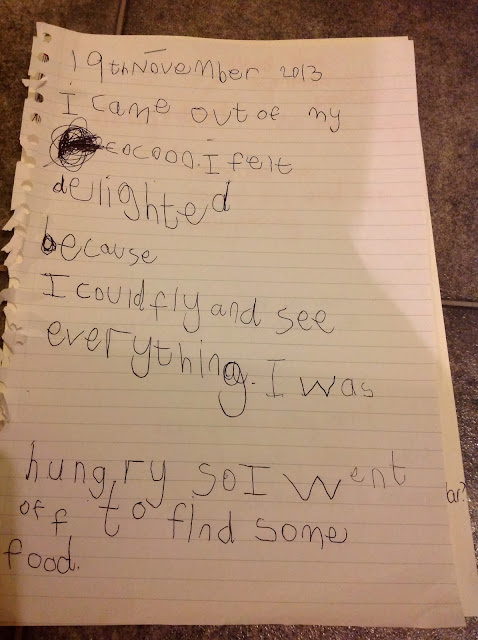 19th November 2013
I came out of my
cocoon. I felt
delighted
because
I could fly and see
everything. I was
hungry so I went
off to find some
food.
ar?